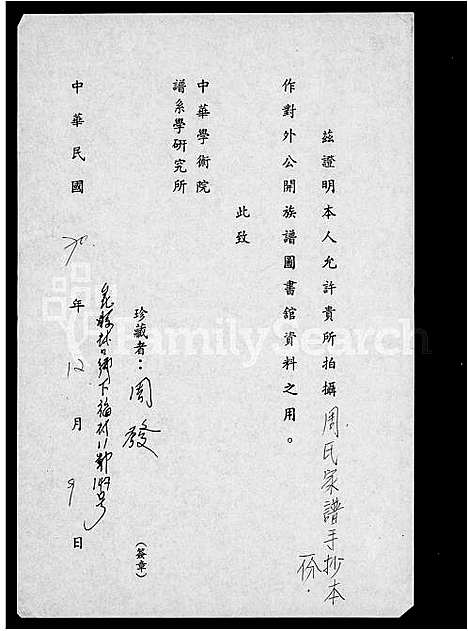 茲證明本人允許貴所拍攝周氏家譜手抄本
份.
作對外公開族譜圖書館資料之用。
此致
中華學術院
譜系學研究所
珍藏者：周發
(簽章)
林口鄉下福村11鄰149號
中華民國70年12月9日
FamilySearch